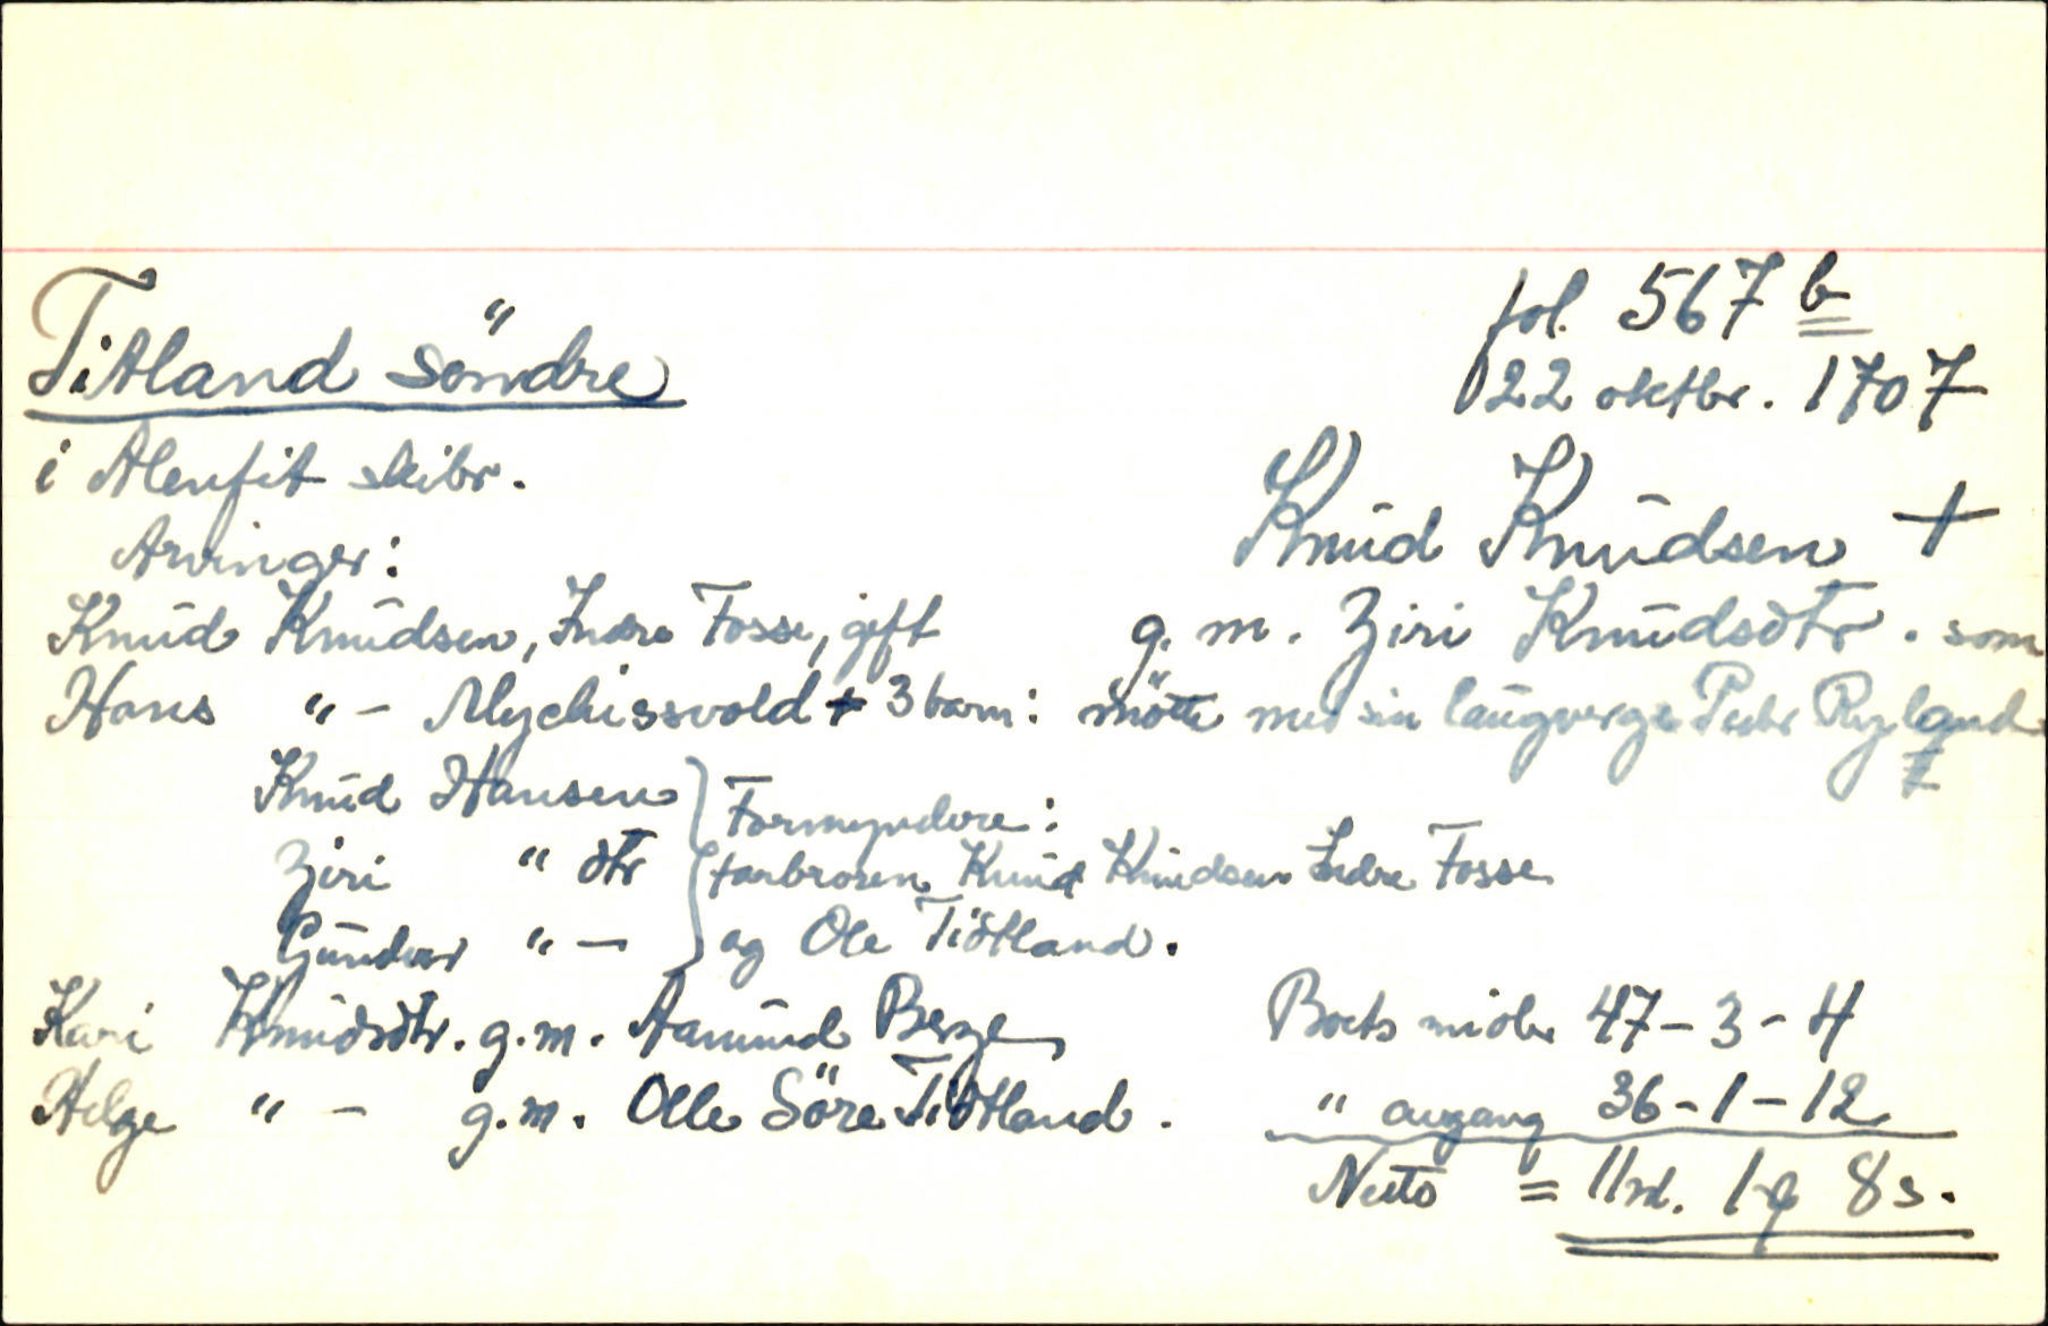 Titland söndre
fol. 567 b
22 oktbr. 1707
i Alenfit skibr.
Knud Knudsen +
Arvinger:
g. m. Ziri Knudsdtr. som
mötte med sin laugverge Peder Ryland
Knud Knudsen, Indre Fosse, gift
Hans " - Myckissvold + 3 barn:
Knud Hansen
Ziri " dtr
Gunder " -
Formyndere:
farbroren Knud Knudsen Indre Fosse
og Ole Tidtland.
Kari Knudsdtr. g.m. Aamund Berge
Helge " - g.m. Olle Söre Tidtland.
Boets midler 47-3-4
" augang 36-1-12
Netto = 11rd. 1 q 8 s.